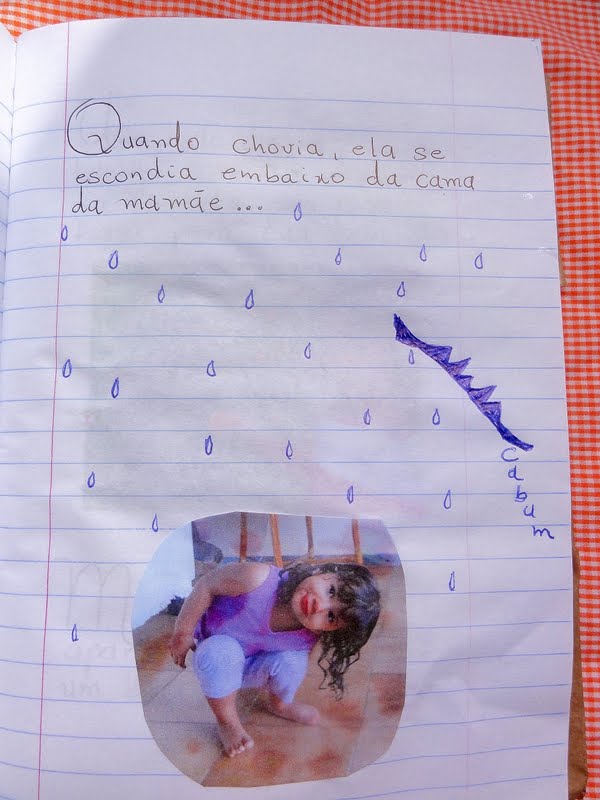 Quando chovia, ela se
escondia embaixo da cama
da mamãe...
Cabum